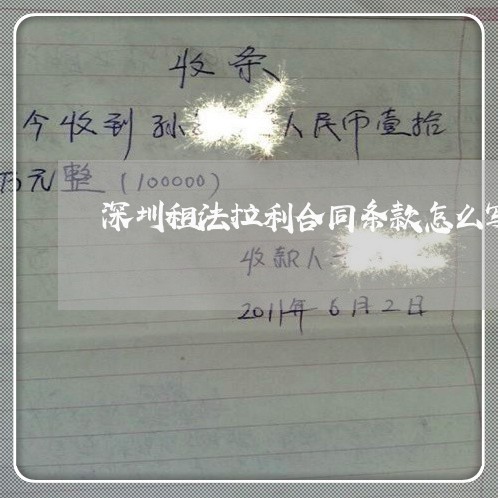 收条
今收到孙 人民币壹拾
万元整(100000)
深圳租法拉利合同条款怎么写
收款人
2011年6月2日